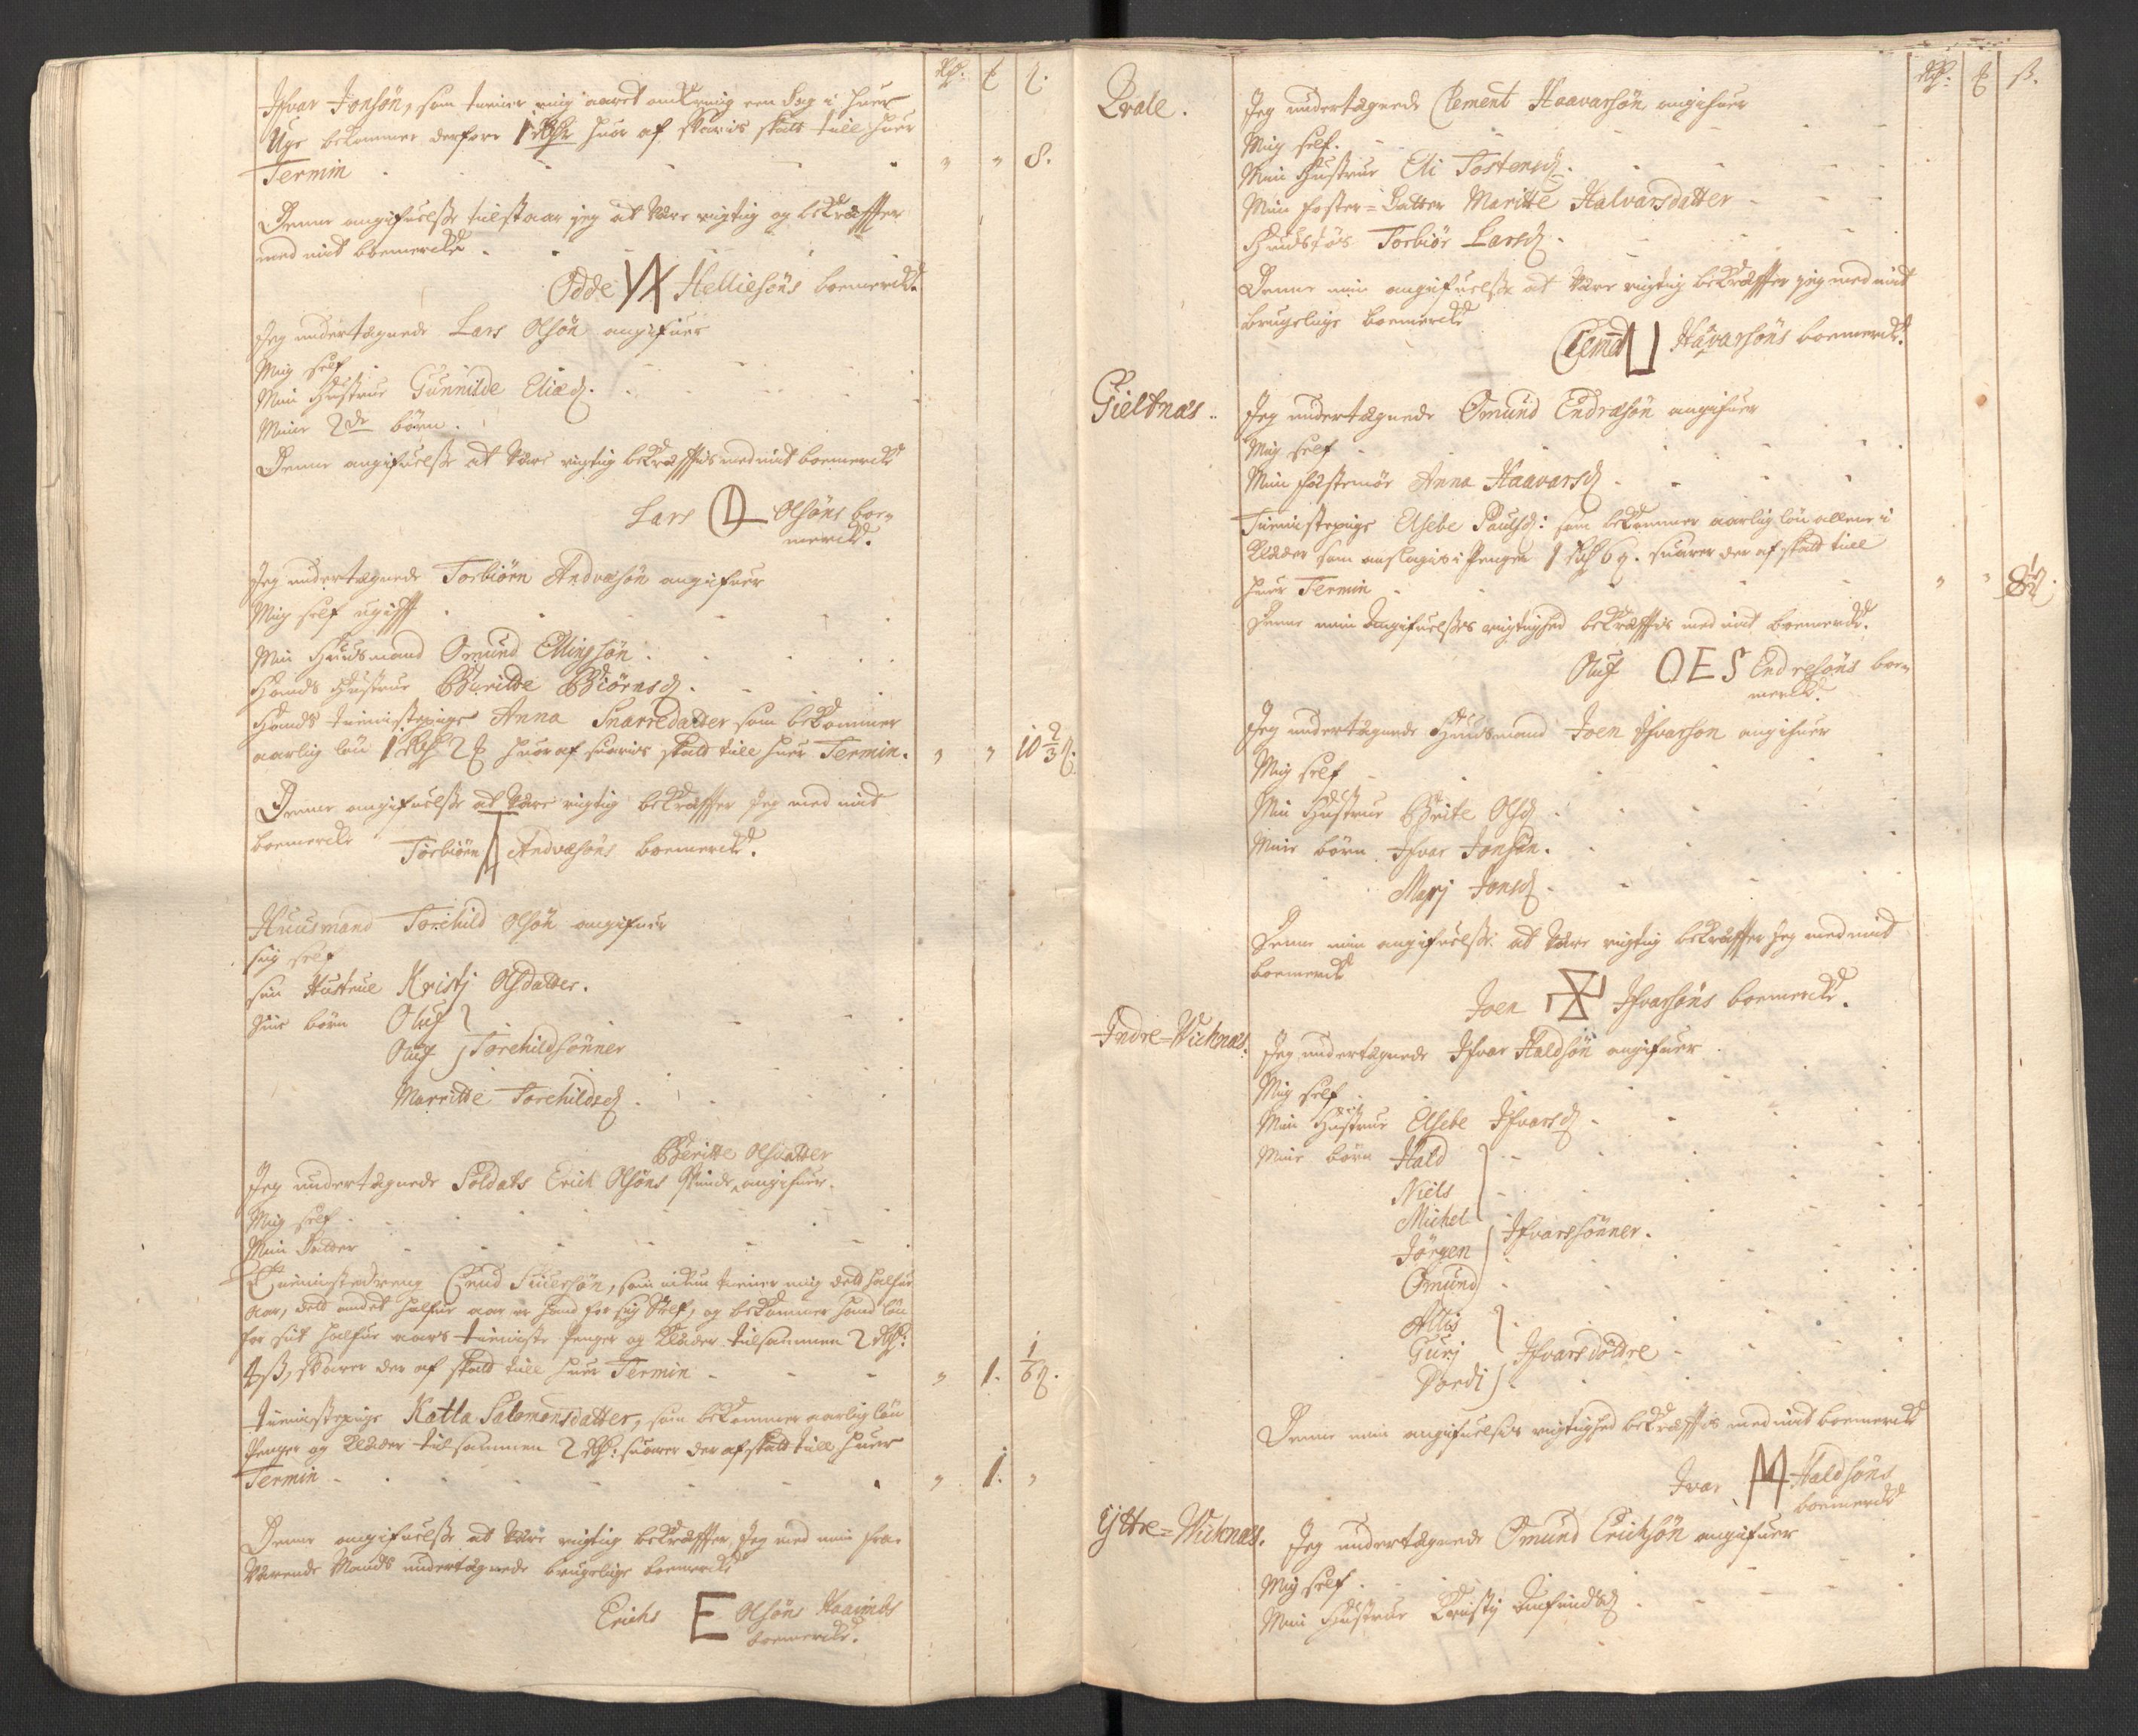 Rdr. ℔ ß.
Ifvar Jonsøn, som tiener mig aaret omkring een dag i huer
Uge bekommer derfore 1 Rdr huor af svaris skatt till huer
Termin " " 8.
Denne angifuelsse tilstaar jeg at være rigtig og bekræffter
med mit boemercke.
Odde Helliesøns boemercke.
Jeg undertegnede Lars Olsøn angifuer
Mig self
Min Hustrue Gunnilde Eliæd.
Mine 2de børn.
Denne angifuelsse at være rigtig bekræfftis med mit boemercke
Lars Olsøns boe-
mercke.
Jeg undertegnede Torbiörn Andvæsøn angifuer
Mig self ugifft
Min Huusmand Omund Ellingsøn.
Hands Hustrue Burilde Biörnsd.
Hands tienistepige Anna Snarredatter som bekommer
aarlig løn 1 Rdr 2 ℔ huor af svaris skatt till huer Termin. " " 10 2/3 ß.
Denne angifuelsse at være rigtig bekræffter Jeg med mit
boemercke Torbiörn Andvæsøns boemercke.
Huusmand Torchild Olsøn angifuer
sig self
sin Hustrue Kristj Olsdatter.
Sine børn Oluf
Oluf Torchildsønner
Marritte Torchildsd.
Beritte Olsdatter
Jeg undertegnede Soldats Erich Olsøns Quinde angifuer.
Mig self
Min datter
Tienistedreng Cnud Siversøn, som ickun tiener mig det halfue
aar, det andet halfue aar er hand for sig self, og bekommer hand løn
for sit halfue aars tieniste Penger og Klæder tilsammen 2 Rdr.
4 ß, svarer der af skatt till huer Termin " 1. 1/6 ß.
tienistepige Katla Salomonsdatter, som bekommer aarlig løn
Penger og Klæder tilsammen 2 Rdr: svarer der af skatt till huer
Termin " 1. "
Denne angifuelsse at være rigtig bekræffter Jeg med min fra-
værende Mands undertegnede brugelige boemercke
Erichs E Olsøns Haaimds
boemercke.
Rdr. ℔ ß.
Qvale. Jeg undertegnede Clement Haavarsøn angifuer
Mig self.
Min Hustrue Eli Tostensd.
Min foster-Datter Maritte Halvarsdatter
Huustøs Torbiör Larsd.
Denne min angifuelsse at være rigtig bekræffter jeg med mit
brugelige boemercke
Clemet Håvarsøns boemercke.
Gieltnæs.. Jeg undertegnede Omund Endræsøn angifuer
Mig self
Min fæstemøe Anna Haavarsd
Tienistepige Elsebe Paulsd: som bekommer aarlig løn allene i
Klæder som anslagis i Penger 1 Rdr 6 ß. svarer der af skatt till
huer Termin " " 8 1/2 ß.
Denne min angifuelsses rigtighed bekræfftis med mit boemercke.
Oluf OES Endresøns boe-
mercke.
Jeg undertegnede Huusmand Joen Ifvarsøn angifuer
Mig self
Min Hustrue Brite Olsd
Mine børn Ifvar Jonsøn.
Marj Jonsd
Denne min angifuelsse at være rigtig bekræffter Jeg med mit
boemercke
Joen Ifvarsøns boemercke.
Indre-Wichnæs. Jeg undertegnede Ifvar Haldsøn angifuer
Mig self
Min Hustrue Elsebe Ifvarsd
Mine børn Hald
Niels
Michel
Jörgen Ifvarssønner.
Omund
Altis
Gurj Ifvarsdöttre
Dordi
Denne min angifuelsses rigtighed bekræfftis med mit boemercke
Ivar Haldsøns
boemercke
Yttre-Wichnæs. Jeg undertegnede Omund Erichsøn angifuer
Mig self.
Min Hustrue Kristj Amfindsd